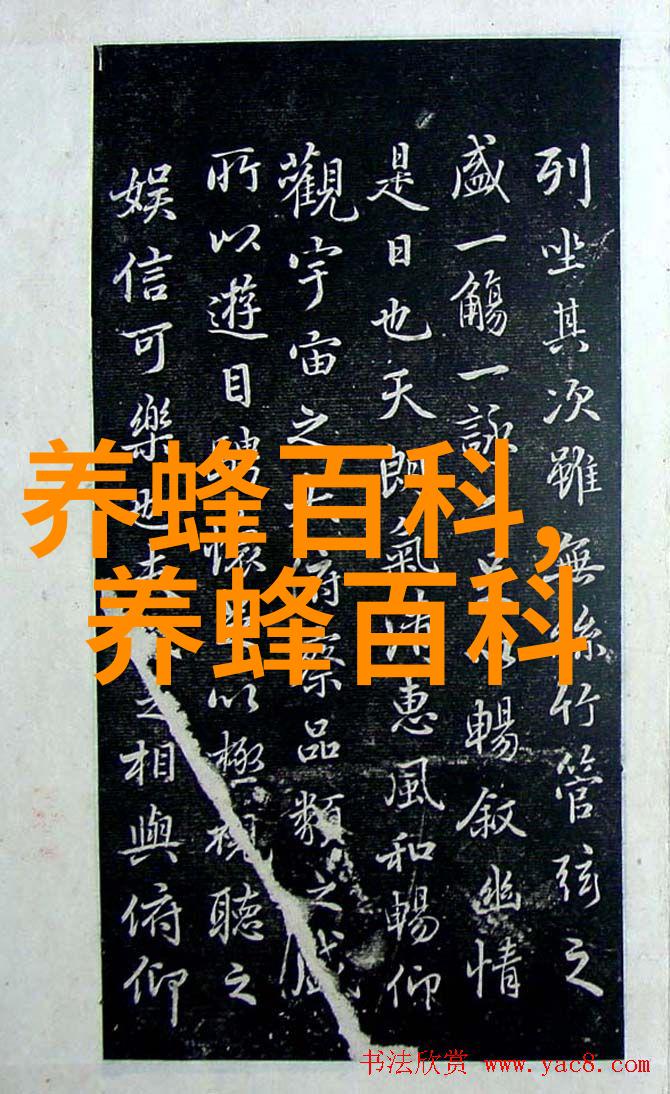 列坐其次雖無絲竹管弦之
盛一觴一詠足以暢叙幽情
是日也天朗氣清惠風和暢仰
觀宇宙之大俯察品類之盛
所以遊目騁懷足以極視聽之
娛信可樂也夫之相與俯仰
养蜂百科,
养蜂百科
书法欣赏 www.yac8.com